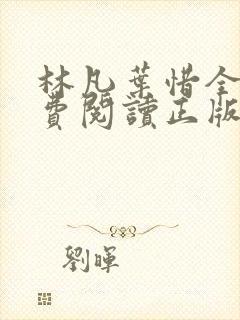 林凡葉惜全
費閱讀正版
劉暉